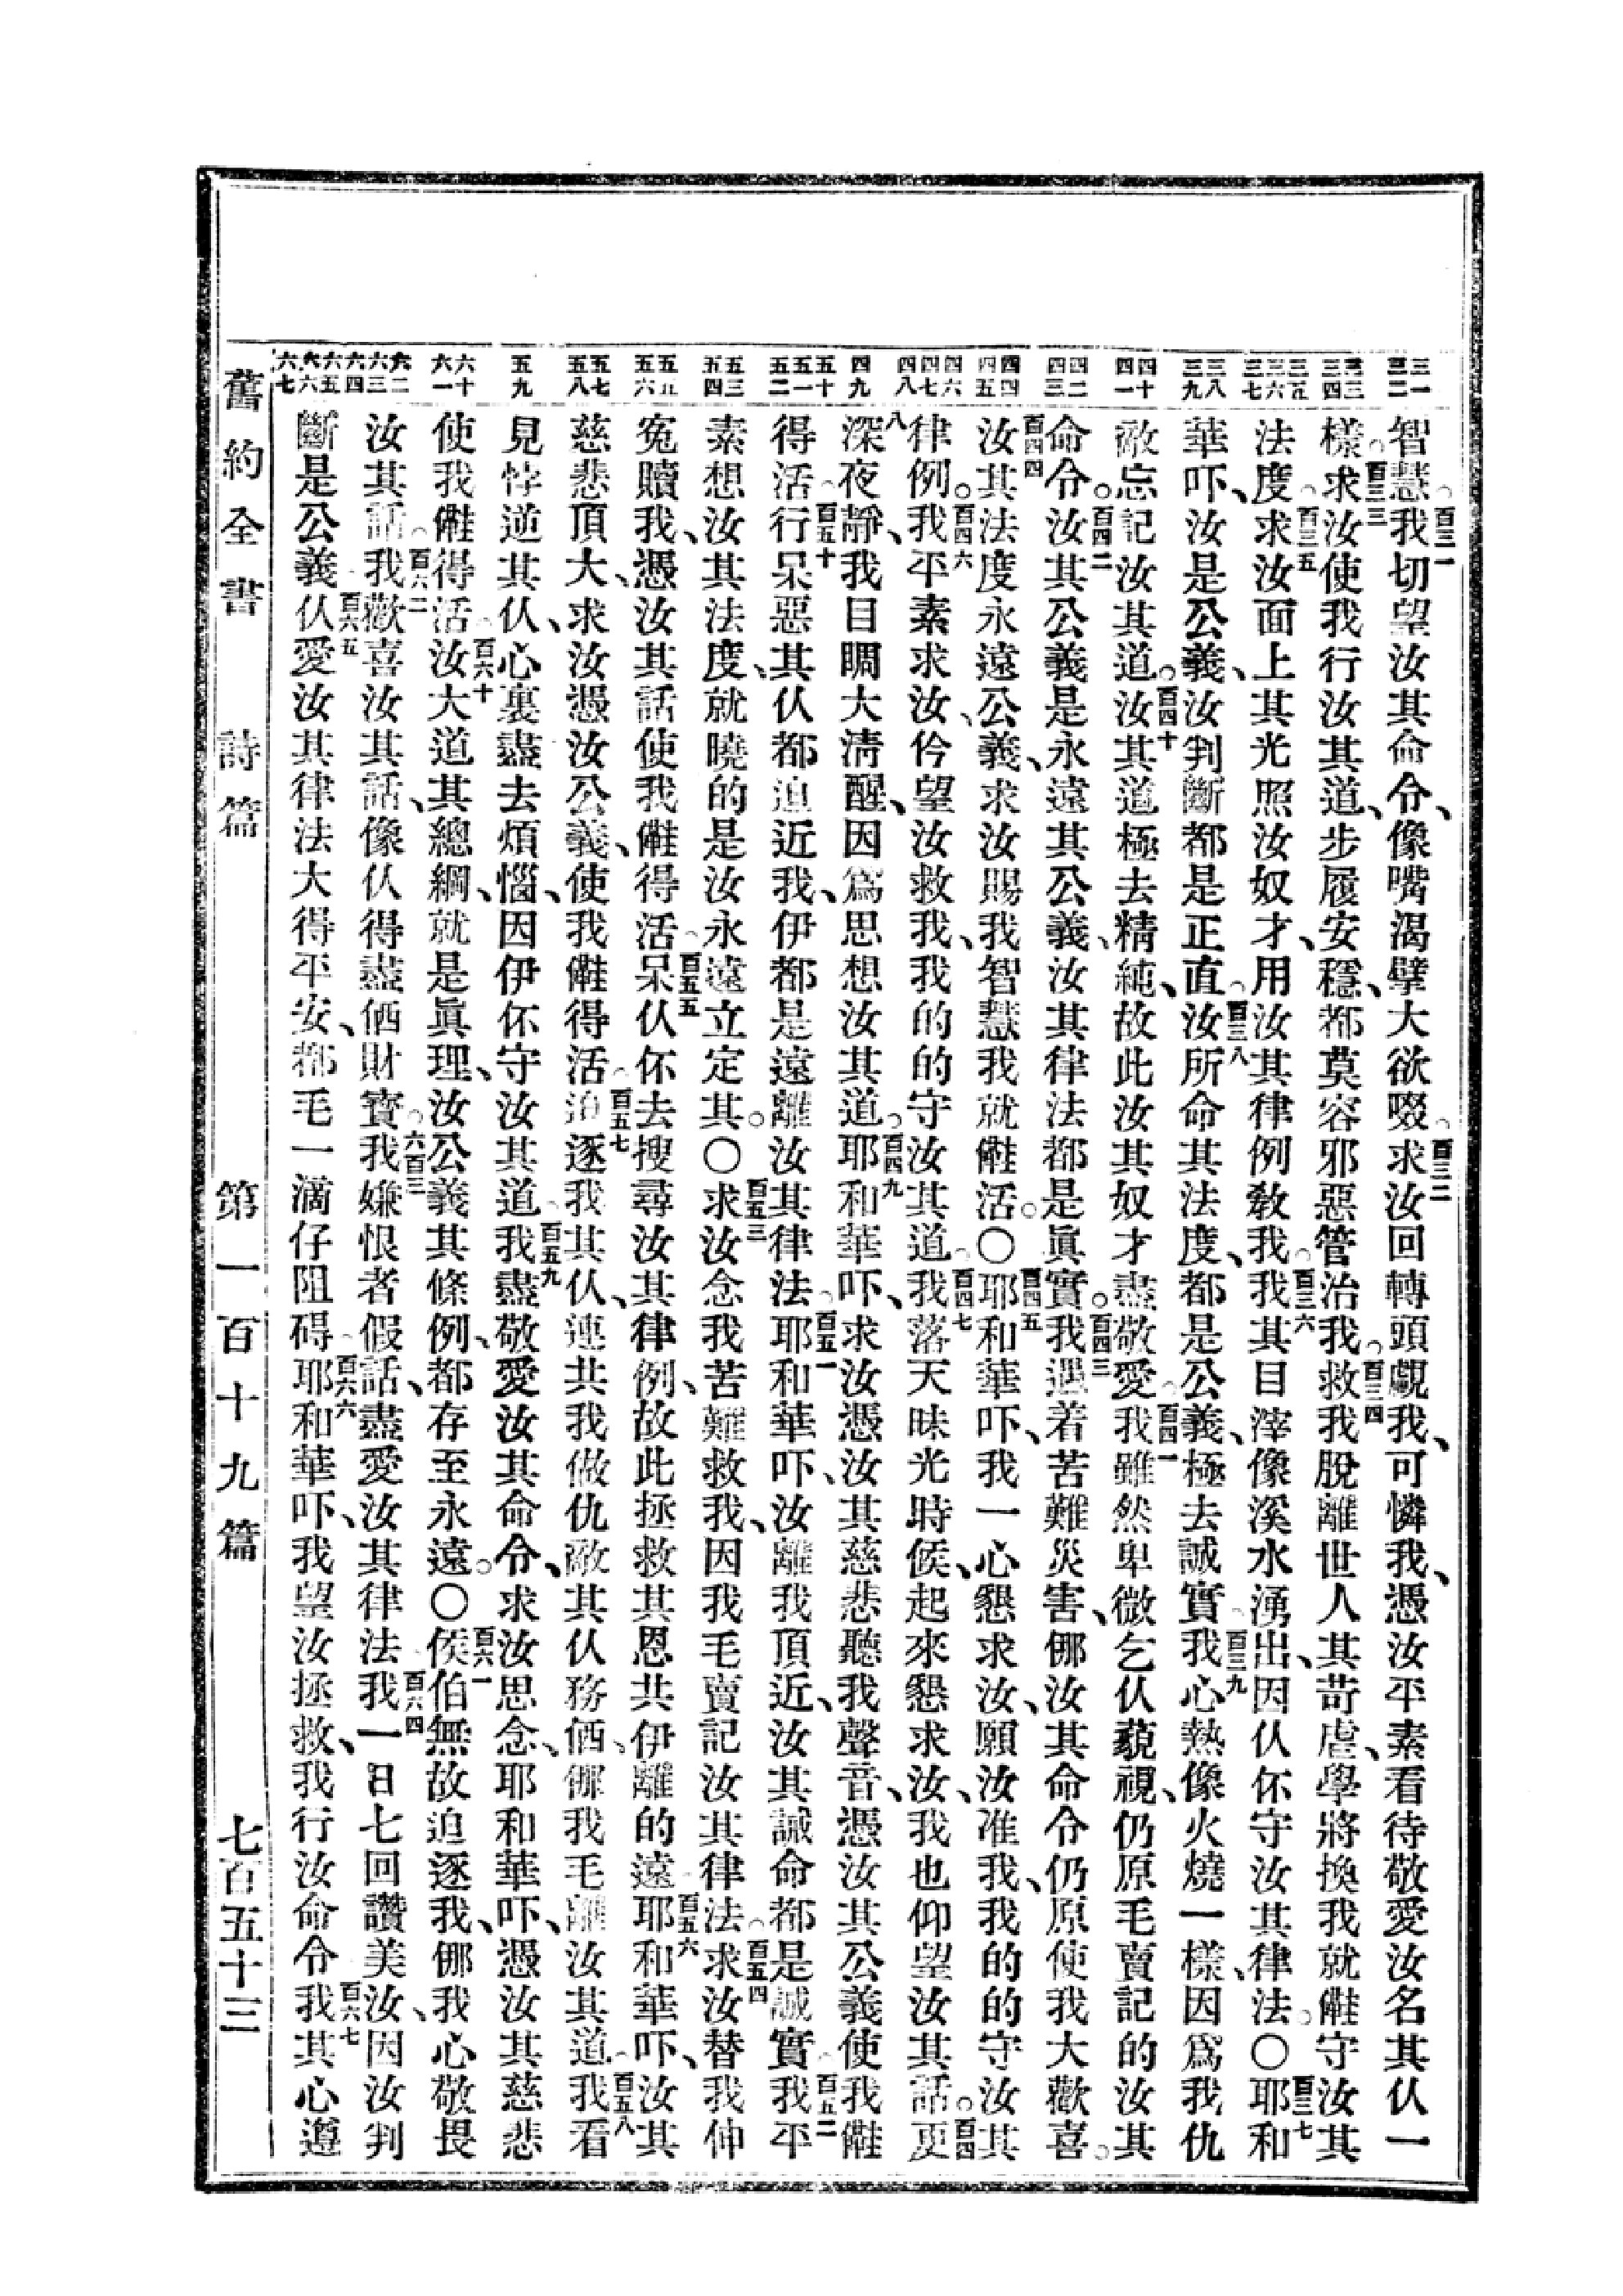 三一 三二 三三 三四 三五 三六 三七 三八 三九 四十 四一 四二 四三 四四 四五 四六 四七 四八 四九 五十 五一 五二 五三 五四 五五 五六 五七 五八 五九 六十 六一 六二 六三 六四 六五 六六 六七
智慧。百三一我切望汝其命令、像嘴渴擘大欲啜。百三二求汝回轉頭覷我、可憐我、憑汝平素看待敬愛汝名其仈一
樣。百三三求汝使我行汝其道、步履安穩、都莫容邪惡管治我。百三四救我脫離世人其苛虐、學將換我就㒤守汝其
法度。百三五求汝面上其光照汝奴才、用汝其律例教我。百三六我其目滓像溪水湧出、因仈伓守汝其律法。〇百三七耶和
華吓、汝是公義、汝判斷都是正直。百三八汝所命其法度、都是公義、極去誠實。百三九我心熱像火燒一樣、因爲我仇
敵忘記汝其道。百四十汝其道極去精純、故此汝其奴才盡敬愛。百四一我雖然卑微乞仈藐視、仍原毛賣記的汝其
命令。百四二汝其公義是永遠其公義、汝其律法都是眞實。百四三我遇着苦難災害、㑚汝其命令、仍原使我大歡喜。
百四四汝其法度永遠公義、求汝賜我智慧我就㒤活。〇百四五耶和華吓、我一心懇求汝、願汝准我、我的的守汝其
律例。百四六我平素求汝、仱望汝救我、我的的守汝其道。百四七我落天昧光時候、起來懇求汝、我也仰望汝其話。百四八更
深夜靜、我目睭大淸醒、因爲思想汝其道。百四九耶和華吓、求汝憑汝其慈悲聽我聲音、憑汝其公義使我㒤
得活。百五十行呆惡其仈都迫近我、伊都是遠離汝其律法。百五一耶和華吓、汝離我頂近、汝其誡命都是誠實。百五二我平
素想汝其法度、就曉的是汝永遠立定其。〇百五三求汝念我苦難救我、因我毛賣記汝其律法。百五四求汝替我伸
冤贖我、憑汝其話使我㒤得活。百五五呆仈伓去搜尋汝其律例、故此拯救其恩共伊離的遠。百五六耶和華吓、汝其
慈悲頂大、求汝憑汝公義、使我㒤得活。百五七迫逐我其仈、連共我做仇敵其仈務㑚、㑚我毛離汝其道。百五八我看
見悖逆其仈、心裏盡去煩惱、因伊伓守汝其道。百五九我盡敬愛汝其命令、求汝思念、耶和華吓、憑汝其慈悲
使我㒤得活。百六十汝大道其總綱、就是眞理、汝公義其條例、都存至永遠。〇百六一侯伯無故迫逐我、㑚我心敬畏
汝其話。百六二我歡喜汝其話、像仈得盡㑚財寶。百六三我嫌恨者假話、盡愛汝其律法。百六四我一日七回讚美汝、因汝判
斷是公義。百六五仈愛汝其律法大得平安、都毛一滴仔阻碍。百六六耶和華吓、我望汝拯救、我行汝命令。百六七我其心遵
舊約全書 詩篇 第一百十九篇 七百五十三